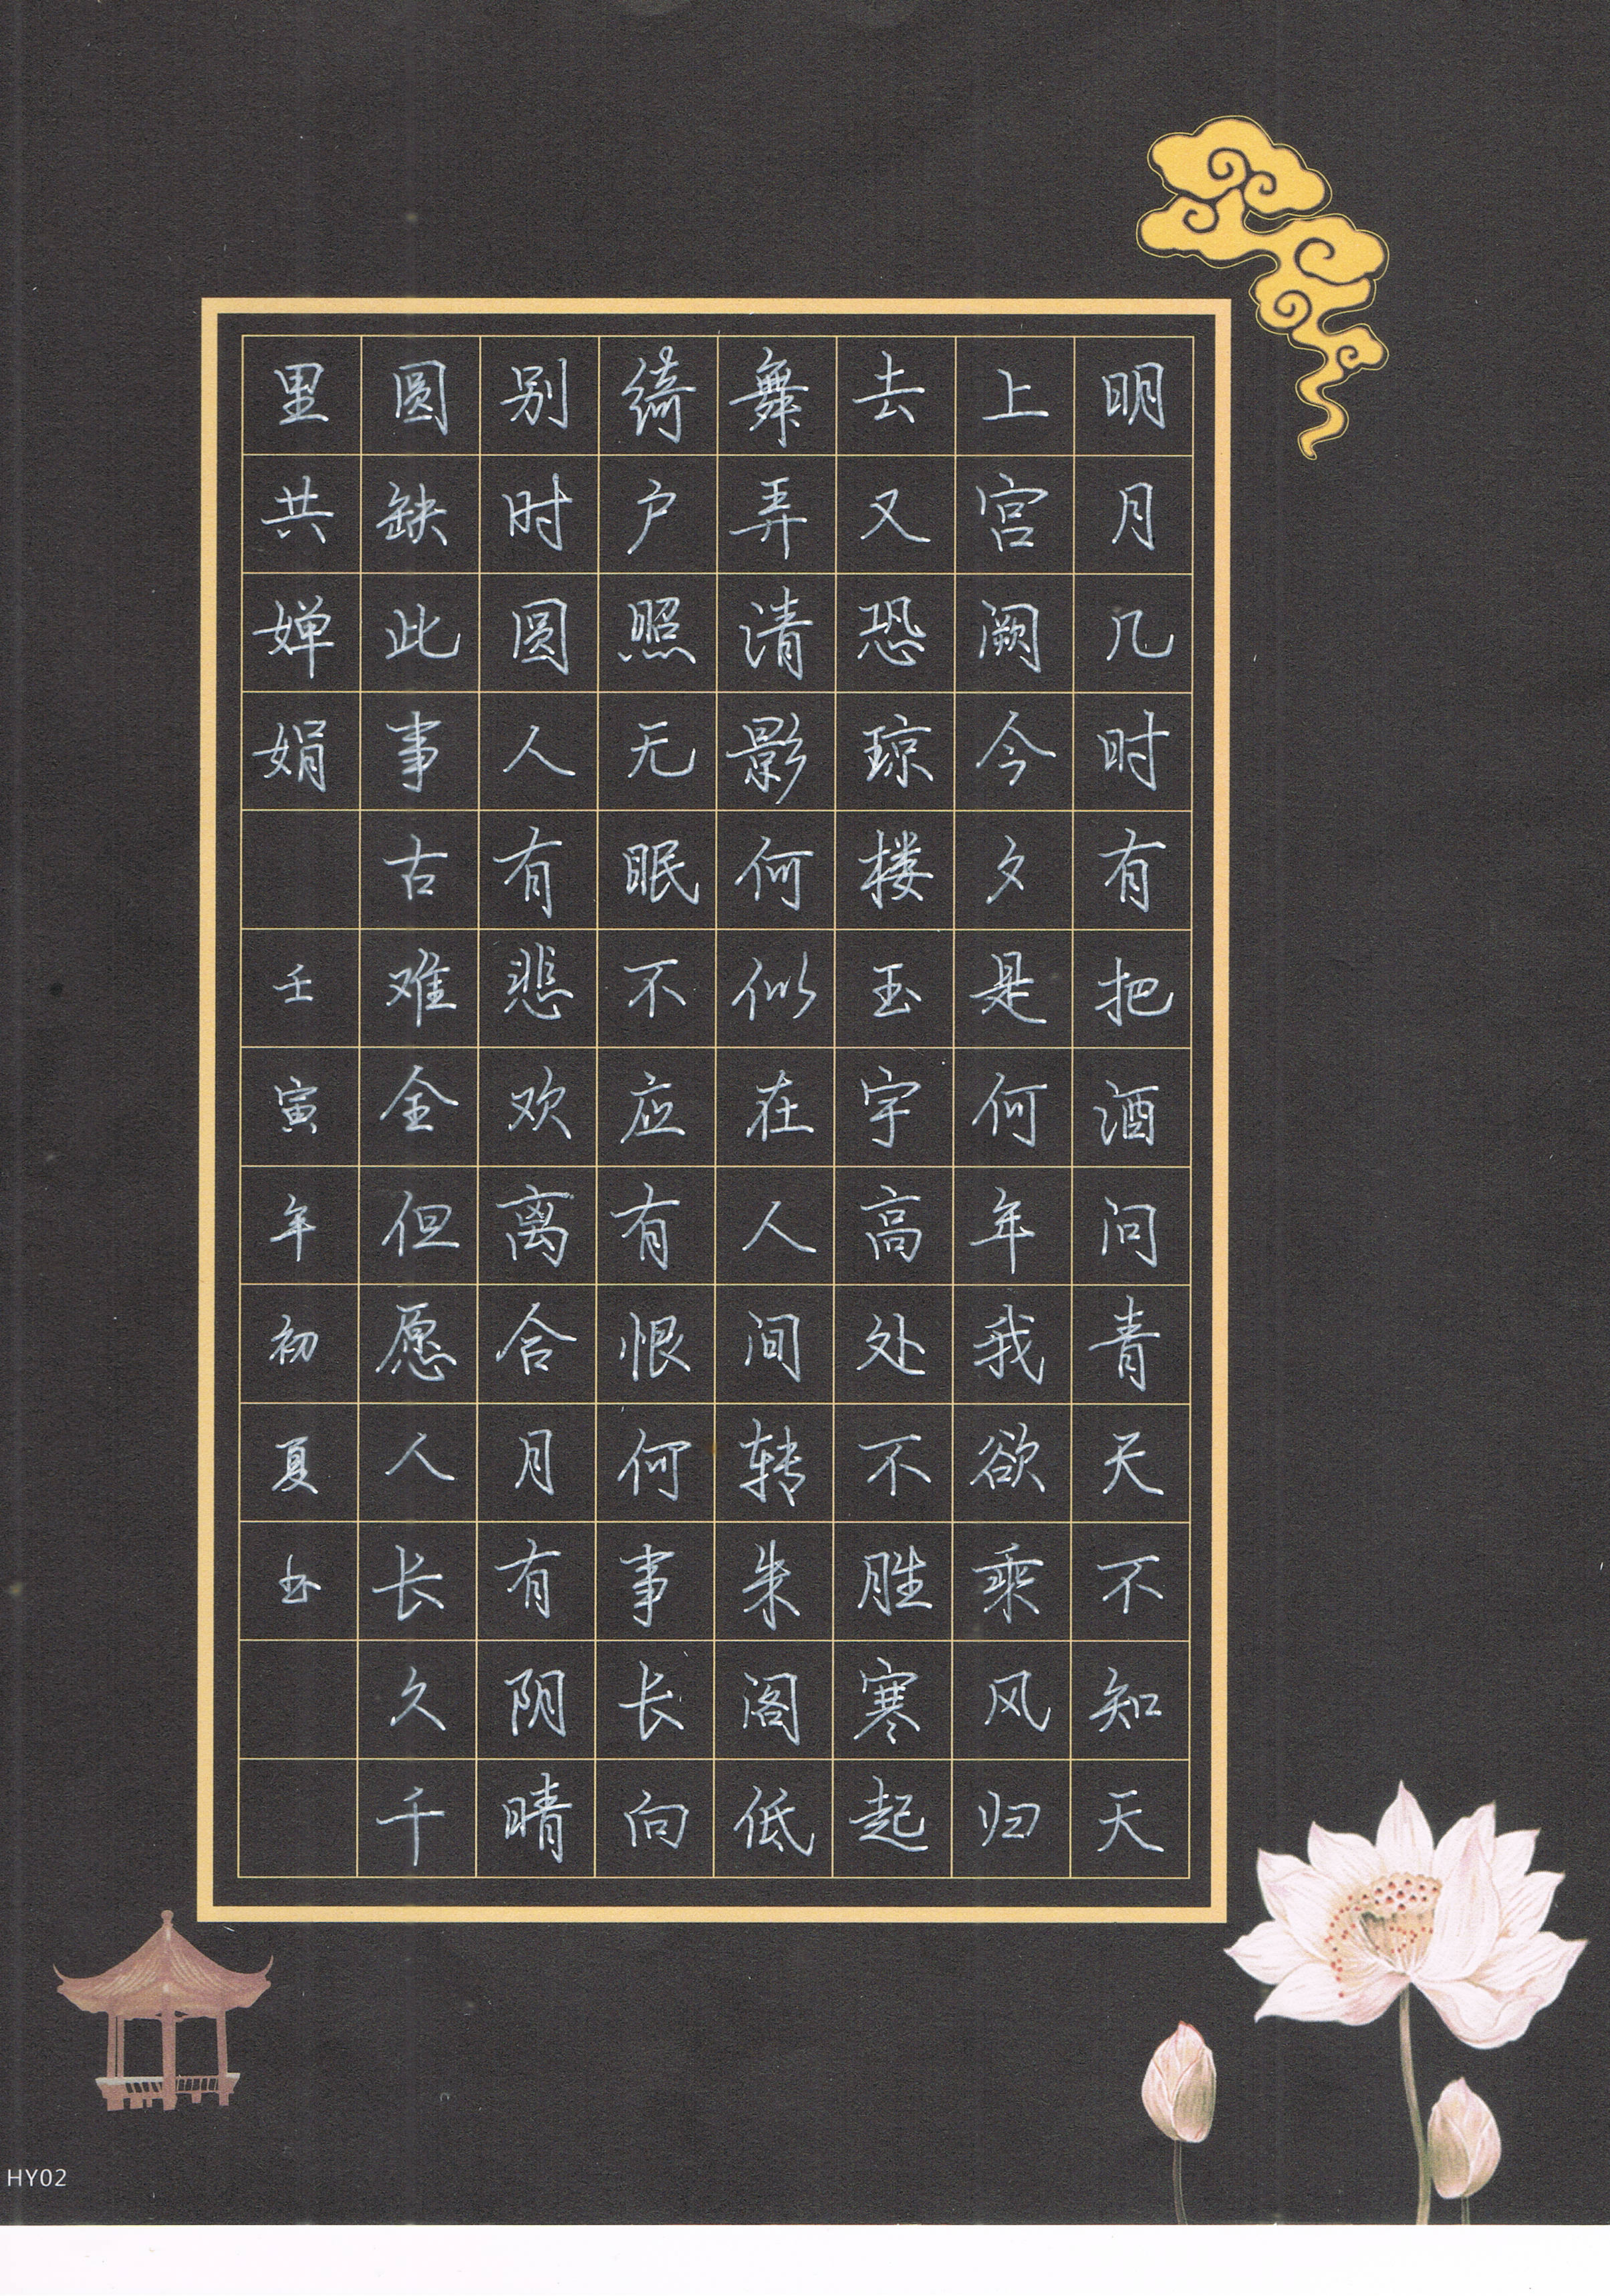 明月几时有把酒问青天不知天
上宫阙今夕是何年我欲乘风归
去又恐琼楼玉宇高处不胜寒起
舞弄清影何似在人间转朱阁低
绮户照无眠不应有恨何事长向
别时圆人有悲欢离合月有阴晴
圆缺此事古难全但愿人长久千
里共婵娟 壬寅年初夏
HY02